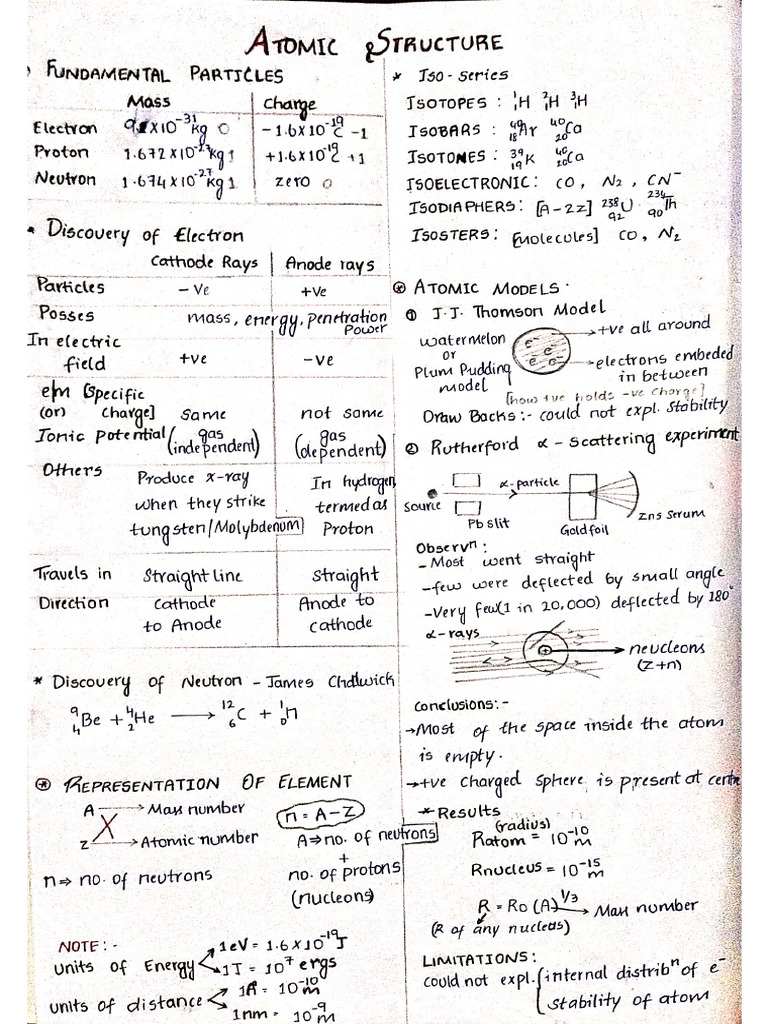 ATOMIC STRUCTURE
FUNDAMENTAL PARTICLES
Mass Charge
Electron 9.1×10⁻³¹kg 0 −1.6×10⁻¹⁹C −1
Proton 1.672×10⁻²⁷kg 1 +1.6×10⁻¹⁹C +1
Neutron 1.674×10⁻²⁷kg 1 zero 0
* Discovery of Electron
Cathode Rays Anode rays
Particles −Ve +ve
Posses mass, energy, penetration Power
In electric field +ve −ve
e/m [Specific (or) charge] same not same
Ionic potential (gas independent) (gas dependent)
Others Produce x-ray In hydrogen
when they strike termed as
tungsten/Molybdenum Proton
Travels in Straight line Straight
Direction Cathode Anode to
to Anode cathode
* Discovery of Neutron - James Chdwick
⁹₄Be + ⁴₂He ⟶ ¹²₆C + ¹₀n
⊛ REPRESENTATION OF ELEMENT
A → Mass number n = A−Z
Z → Atomic number A⇒no. of neutrons
+
n⇒ no. of neutrons no. of protons
(nucleons)
NOTE :-
units of Energy 1eV = 1.6×10⁻¹⁹J
1J = 10⁷ ergs
units of distance 1Å = 10⁻¹⁰m
1nm = 10⁻⁹m
* Iso-series
ISOTOPES : ¹₁H ²₁H ³₁H
ISOBARS : ⁴⁰₁₈Ar ⁴⁰₂₀Ca
ISOTONES : ³⁹₁₉K ⁴⁰₂₀Ca
ISOELECTRONIC: CO, N₂, CN⁻
ISODIAPHERS: [A-2z] ²³⁸₉₂U ²³⁴₉₀Th
ISOSTERS: [Molecules] CO, N₂
⊛ ATOMIC MODELS.
① J.J. Thomson Model
watermelon +ve all around
or
Plum Pudding electrons embeded
model in between
[how +ve holds -ve charge]
Draw Backs:- could not expl. stability
② Rutherford α - scattering experiment
α-particle
Source
Pb slit Gold foil Zns Serum
Observⁿ:
- Most went straight
- few were deflected by small angle
- Very few (1 in 20,000) deflected by 180°
α-rays
neucleons
(Z+n)
Conclusions:-
→ Most of the space inside the atom
is empty.
→ +ve charged sphere is present at centre
* Results
(radius)
Ratom = 10⁻¹⁰m
Rnucleus = 10⁻¹⁵m
R = Ro (A)^1/3 → Mass number
(R of any nucleus)
LIMITATIONS:
could not expl. internal distribⁿ of e⁻
stability of atom